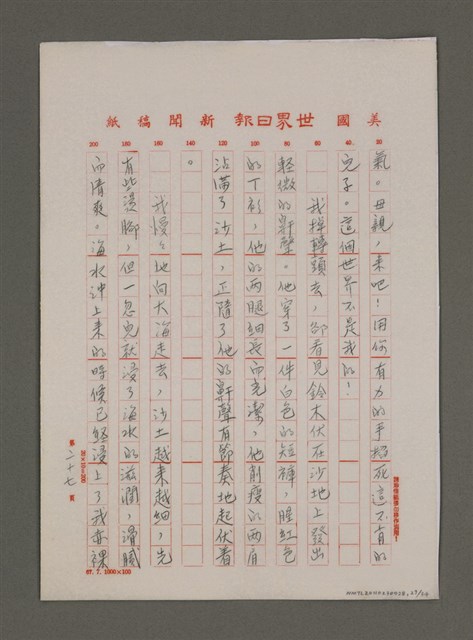 美國世界日報新聞稿紙
氣。母親，來吧！用你有力的手掐死這不肖的
兒子。這個世界不是我的！
我掉轉頭去，卻看見鈴木伏在沙地上發出
輕微的鼾聲。他穿了一件白色的短褲，腥紅色
的丁衫，他的兩腿細長而光潔，他削瘦的兩肩
沾滿了沙土，正隨了他的鼾聲有節奏地起伏着
。
我慢々地向大海走去，沙土越來越細，先
有些燙腳，但一忽兒就浸了海水的滋潤，滑膩
而清爽。海水沖上來的時候已經浸上了我赤裸
20
40
60
80
100
120
140
160
180
200
第二十七頁